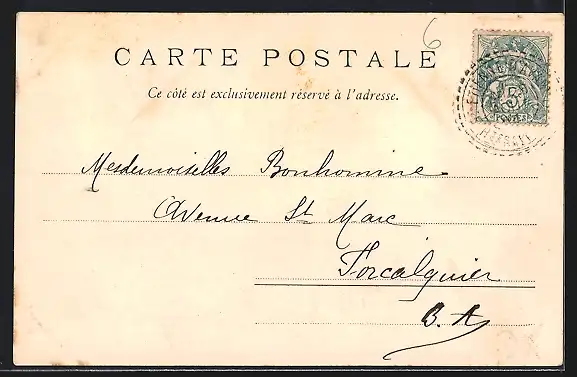 6
CARTE POSTALE
Ce côté est exclusivement réservé à l'adresse.
5
POSTES
Mesdemoiselles Bonhomme
Avenue St Marc
Forcalquier
B. A